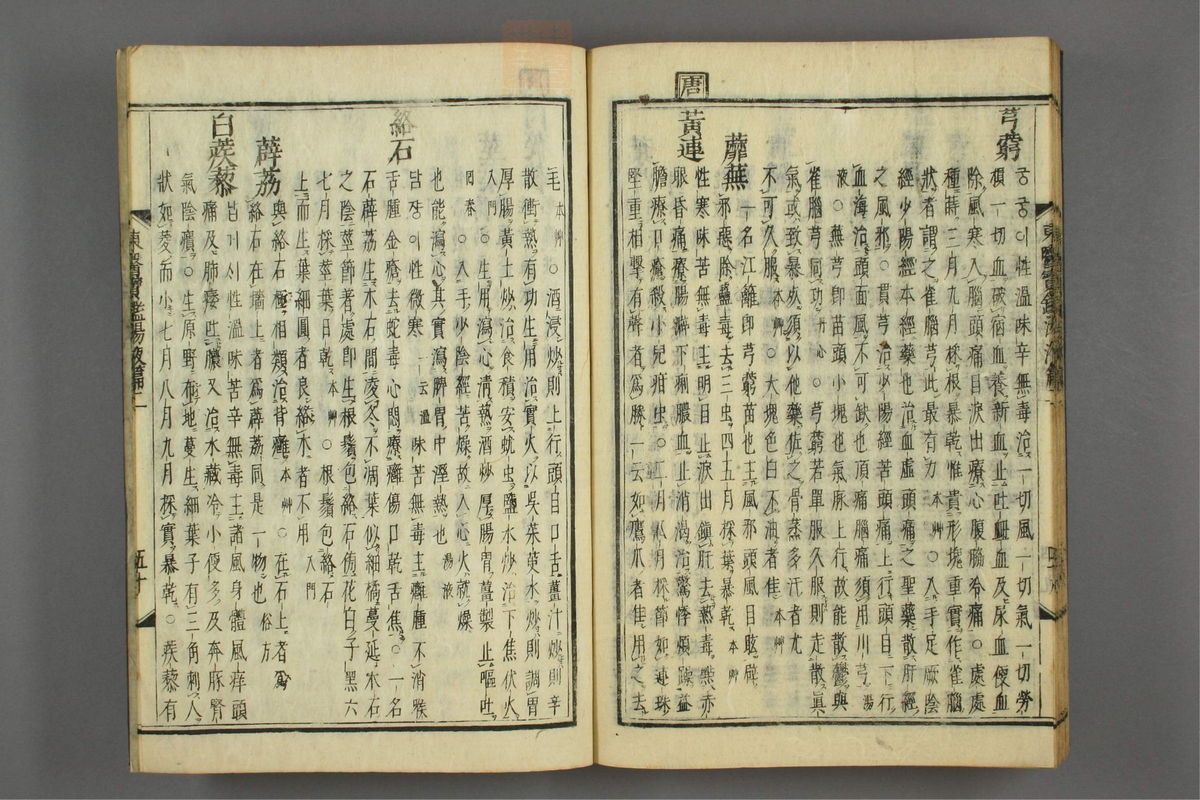 芎藭
궁궁이性溫味辛無毒治一切風一切氣一切勞
損一切血破宿血養新血止吐衄血及尿血便血
除風寒入腦頭痛目淚出療心腹腦冷痛○處處
種蒔三月九月採根暴乾惟貴形塊重實作雀腦
狀者謂之雀腦芎此最有力本艸○入手足厥陰
經少陽經本經藥也治血虛頭痛之聖藥散肝經
之風邪○貫芎治少陽經苦頭痛上行頭目下行
血海治頭面風不可缺也頂痛腦痛須用川芎湯
液○芎卽苗頭小塊也氣脉上行故能散鬱與
雀腦芎同功丹心○芎藭若單服久服則走散眞
氣或致暴死須以他藥佐之骨蒸多汗者尤
不可久服本艸○大塊色白不油者佳本艸
蘼蕪
一名江蘺卽芎藭苗也主風邪頭風目眩辟
邪惡除蠱毒去三虫四五月採葉暴乾本艸
唐
黃連
性寒味苦無毒主明目止淚出鎭肝去熱毒點赤
眼昏痛療腸澼下痢膿血止消渴治驚悸煩躁益
膽療口瘡殺小兒疳虫○二月八月採節如連珠
堅重相擊有聲者爲勝一云如鷹爪者佳用之去
毛本艸○酒浸炒則上行頭目口舌薑汁炒則辛
散衝熱有功生用治實火以吳茱萸水炒則調胃
厚腸黃土炒治食積安蚘虫鹽水炒治下焦伏火
入門○生用瀉心淸熱酒炒厚腸胃薑製止嘔吐
回春○入手少陰經苦燥故入心火就燥
也能瀉心其實瀉脾胃中溼熱也湯液
絡石
담쟝이性微寒一云溫味苦無毒主癰腫不消喉
舌腫金瘡去蛇毒心悶療癰傷口乾舌焦○一名
石薜荔生木石間凌冬不凋葉似細橘蔓延木石
之陰莖節著處卽生根鬚包絡石傍花白子黑六
七月採莖葉日乾本艸○根鬚包絡石
上而生葉細圓者良絡木者不用入門
薜荔
與絡石極相類治背癰本艸○在石上者爲
絡石在墻上者爲薜荔同是一物也俗方
白蒺藜
납가시性溫味苦辛無毒主諸風身體風痒頭
痛及肺痿吐膿又治水藏冷小便多及奔豚腎
氣陰㿉○生原野布地蔓生細葉子有三角刺人
狀如菱而小七月八月九月採實暴乾○蒺藜有
東醫寶鑑湯液篇二
五十